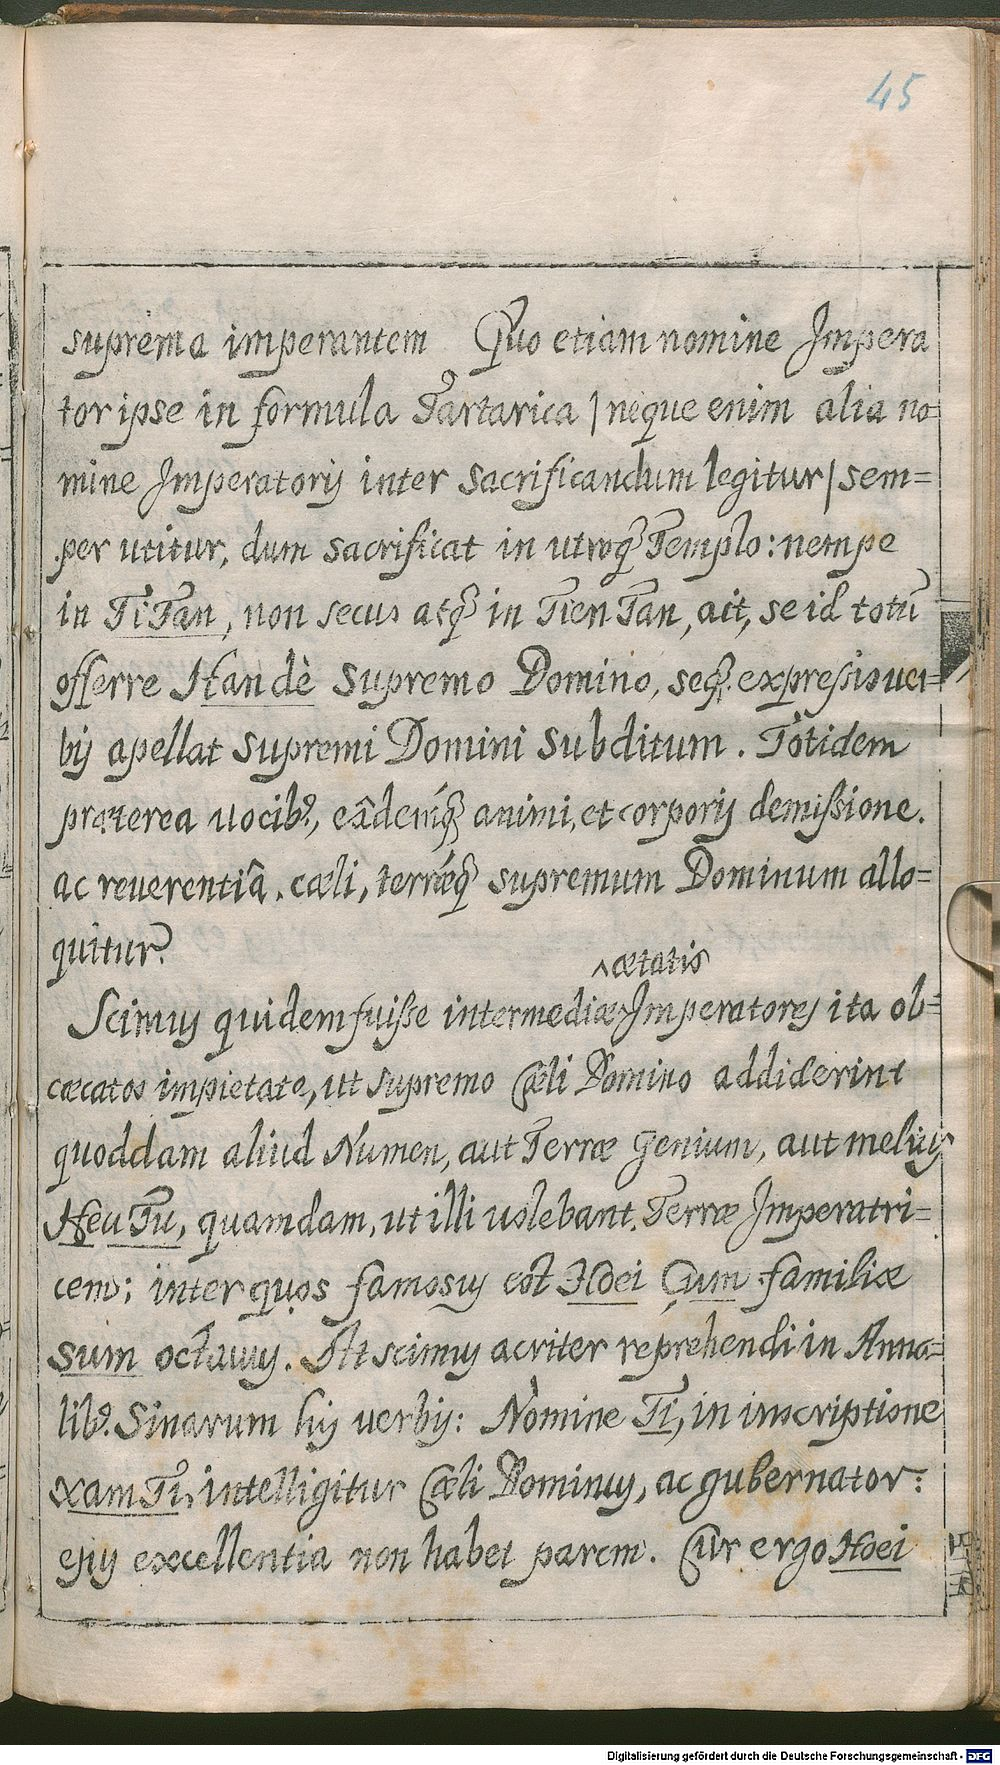 45
suprema imperantem Quo etiam nomine Impera
tor ipse in formula Tartarica / neque enim alia no=
mine Imperatorij inter sacrificandum legitur / sem=
per utitur, dum sacrificat in utroq̃ Templo: nempe
in Ti Tan, non secus atq̃ in Tien Tan, ait, se id totũ
offerre Han dè supremo Domino, seq̃. expressis uer=
bis apellat supremi Domini subditum. Totidem
præterea uocibꝰ, eãdemq̃ animi, et corporis demissione.
ac reuerentiâ. cæli, terræq̃ supremum Dominum allo=
quitur?
^ætatis
Scimus quidem fuisse intermediæ Imperatores ita ob=
cæcatos impietate, ut supremo Cæli Domino addiderint
quoddam aliud Numen, aut Terræ Genium, aut melius
Heu Tu, quamdam, ut illi uolebant, Terræ Imperatri=
cem; inter quos famosus est Hoei Çum familiæ
sum octauus. At scimus acriter reprehendi in Anna=
libꝰ. Sinarum his verbis: Nomine Ti, in inscriptione
xam Ti, intelligitur Cæli Dominus, ac gubernator:
ejus excellentia non habet parem. Cur ergo Hoei
Digitalisierung gefördert durch die Deutsche Forschungsgemeinschaft - DFG